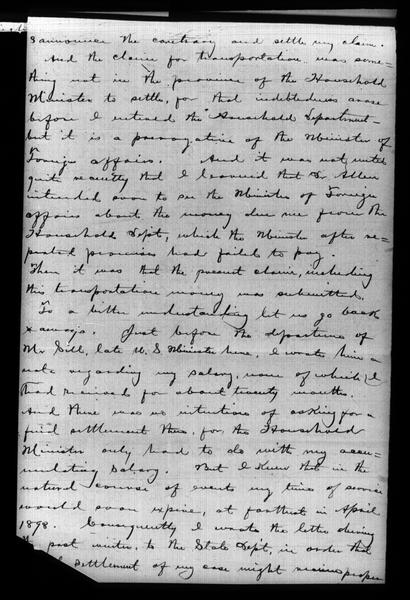 announce the contrary and settle my claim.
And the claim for transportation was some-
thing not in the province of the Household
Minister to settle, for that indebtedness arose
before I entered the Household Department -
but it is a prerogative of the Minister of
Foreign affairs. And it was not until
quite recently that I learned that Dr Allen
intended soon to see the Minister of Foreign
affairs about the money due me from the
Household Dept, which the Minister after re-
peated promises had failed to pay.
Then it was that the present claim, including
this transportation money was submitted.
To a better understanding let us go back
a ways. Just before the departure of
Mr Sill, late U.S. Minister here, I wrote him a
note regarding my salary, none of which I
had received for about twenty months.
And there was no intention of asking for a
final settlement then, for the Household
Minister only had to do with my accu-
mulating salary. But I knew that in the
natural course of events my time of service
would soon expire, at farthest in April
1898. Consequently I wrote the letter during
the past winter, to the State Dept, in order that
settlement of my case might receive proper